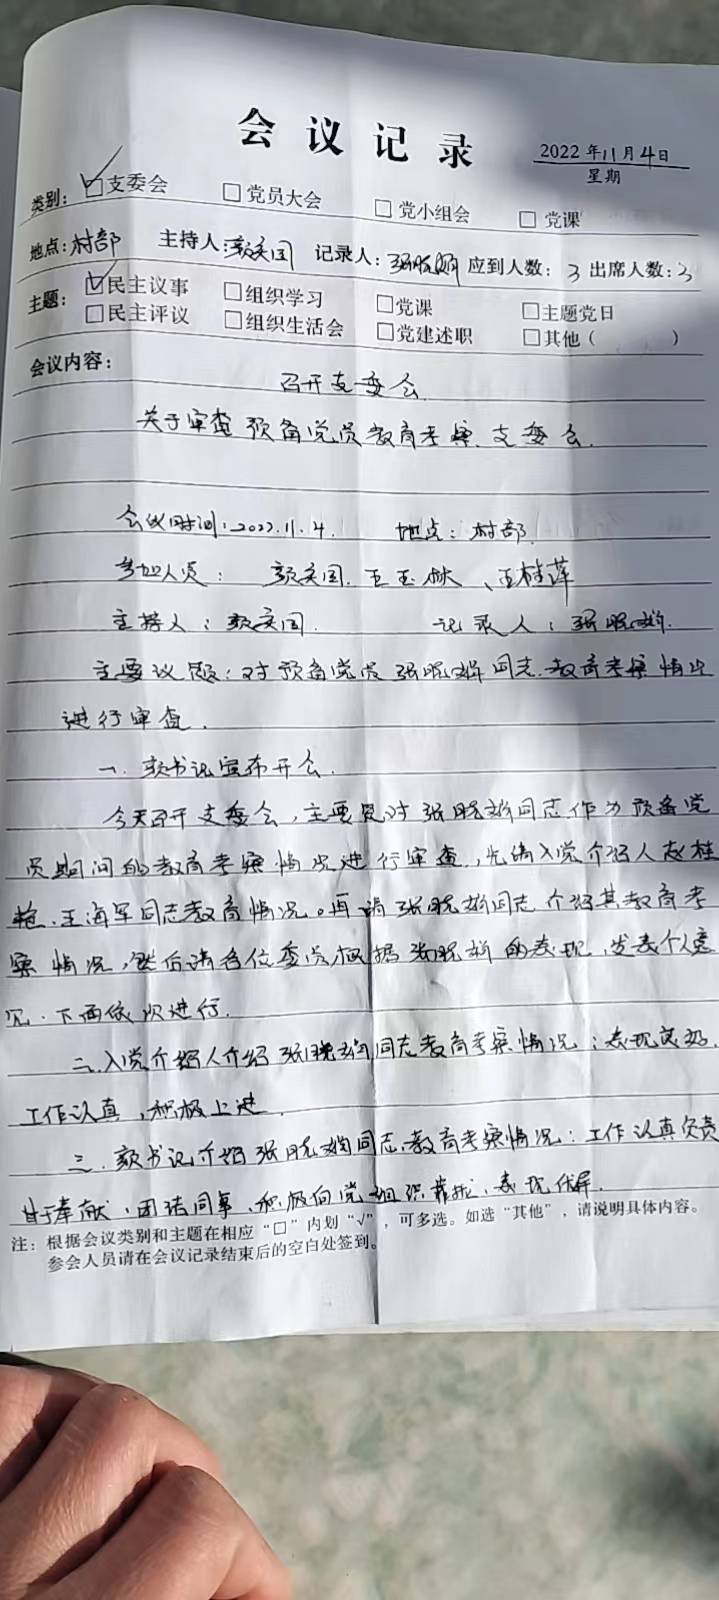 会议记录
2022年11月4日
星期
类别：☑支委会 □党员大会 □党小组会 □党课
地点：村部 主持人： 记录人：张 应到人数：3 出席人数：3
主题：☑民主议事 □组织学习 □党课 □主题党日
□民主评议 □组织生活会 □党建述职 □其他（ ）
会议内容：
召开支委会
关于审查预备党员教育考察支委会.
会议时间：2022.11.4. 地点：村部.
参加人员： 王玉林、王桂萍
主持人： 记录人：张
主要议题：对预备党员张 同志.教育考察情况
进行审查.
一. 书记宣布开会.
今天召开支委会，主要是对张 同志作为预备党
员期间的教育考察情况进行审查，先请入党介绍人赵桂
艳、王海军同志教育情况。再请张 同志介绍其教育考
察情况，然后请各位委员根据张 的表现，发表个人意
见.下面依次进行.
二.入党介绍人介绍张 同志教育考察情况：表现良好，
工作认真，积极上进.
三. 书记介绍张 同志.教育考察情况：工作认真负责
甘于奉献、团结同事、积极向党组织靠拢、表现优异.
注：根据会议类别和主题在相应“□”内划“√”，可多选。如选“其他”，请说明具体内容。
参会人员请在会议记录结束后的空白处签到。